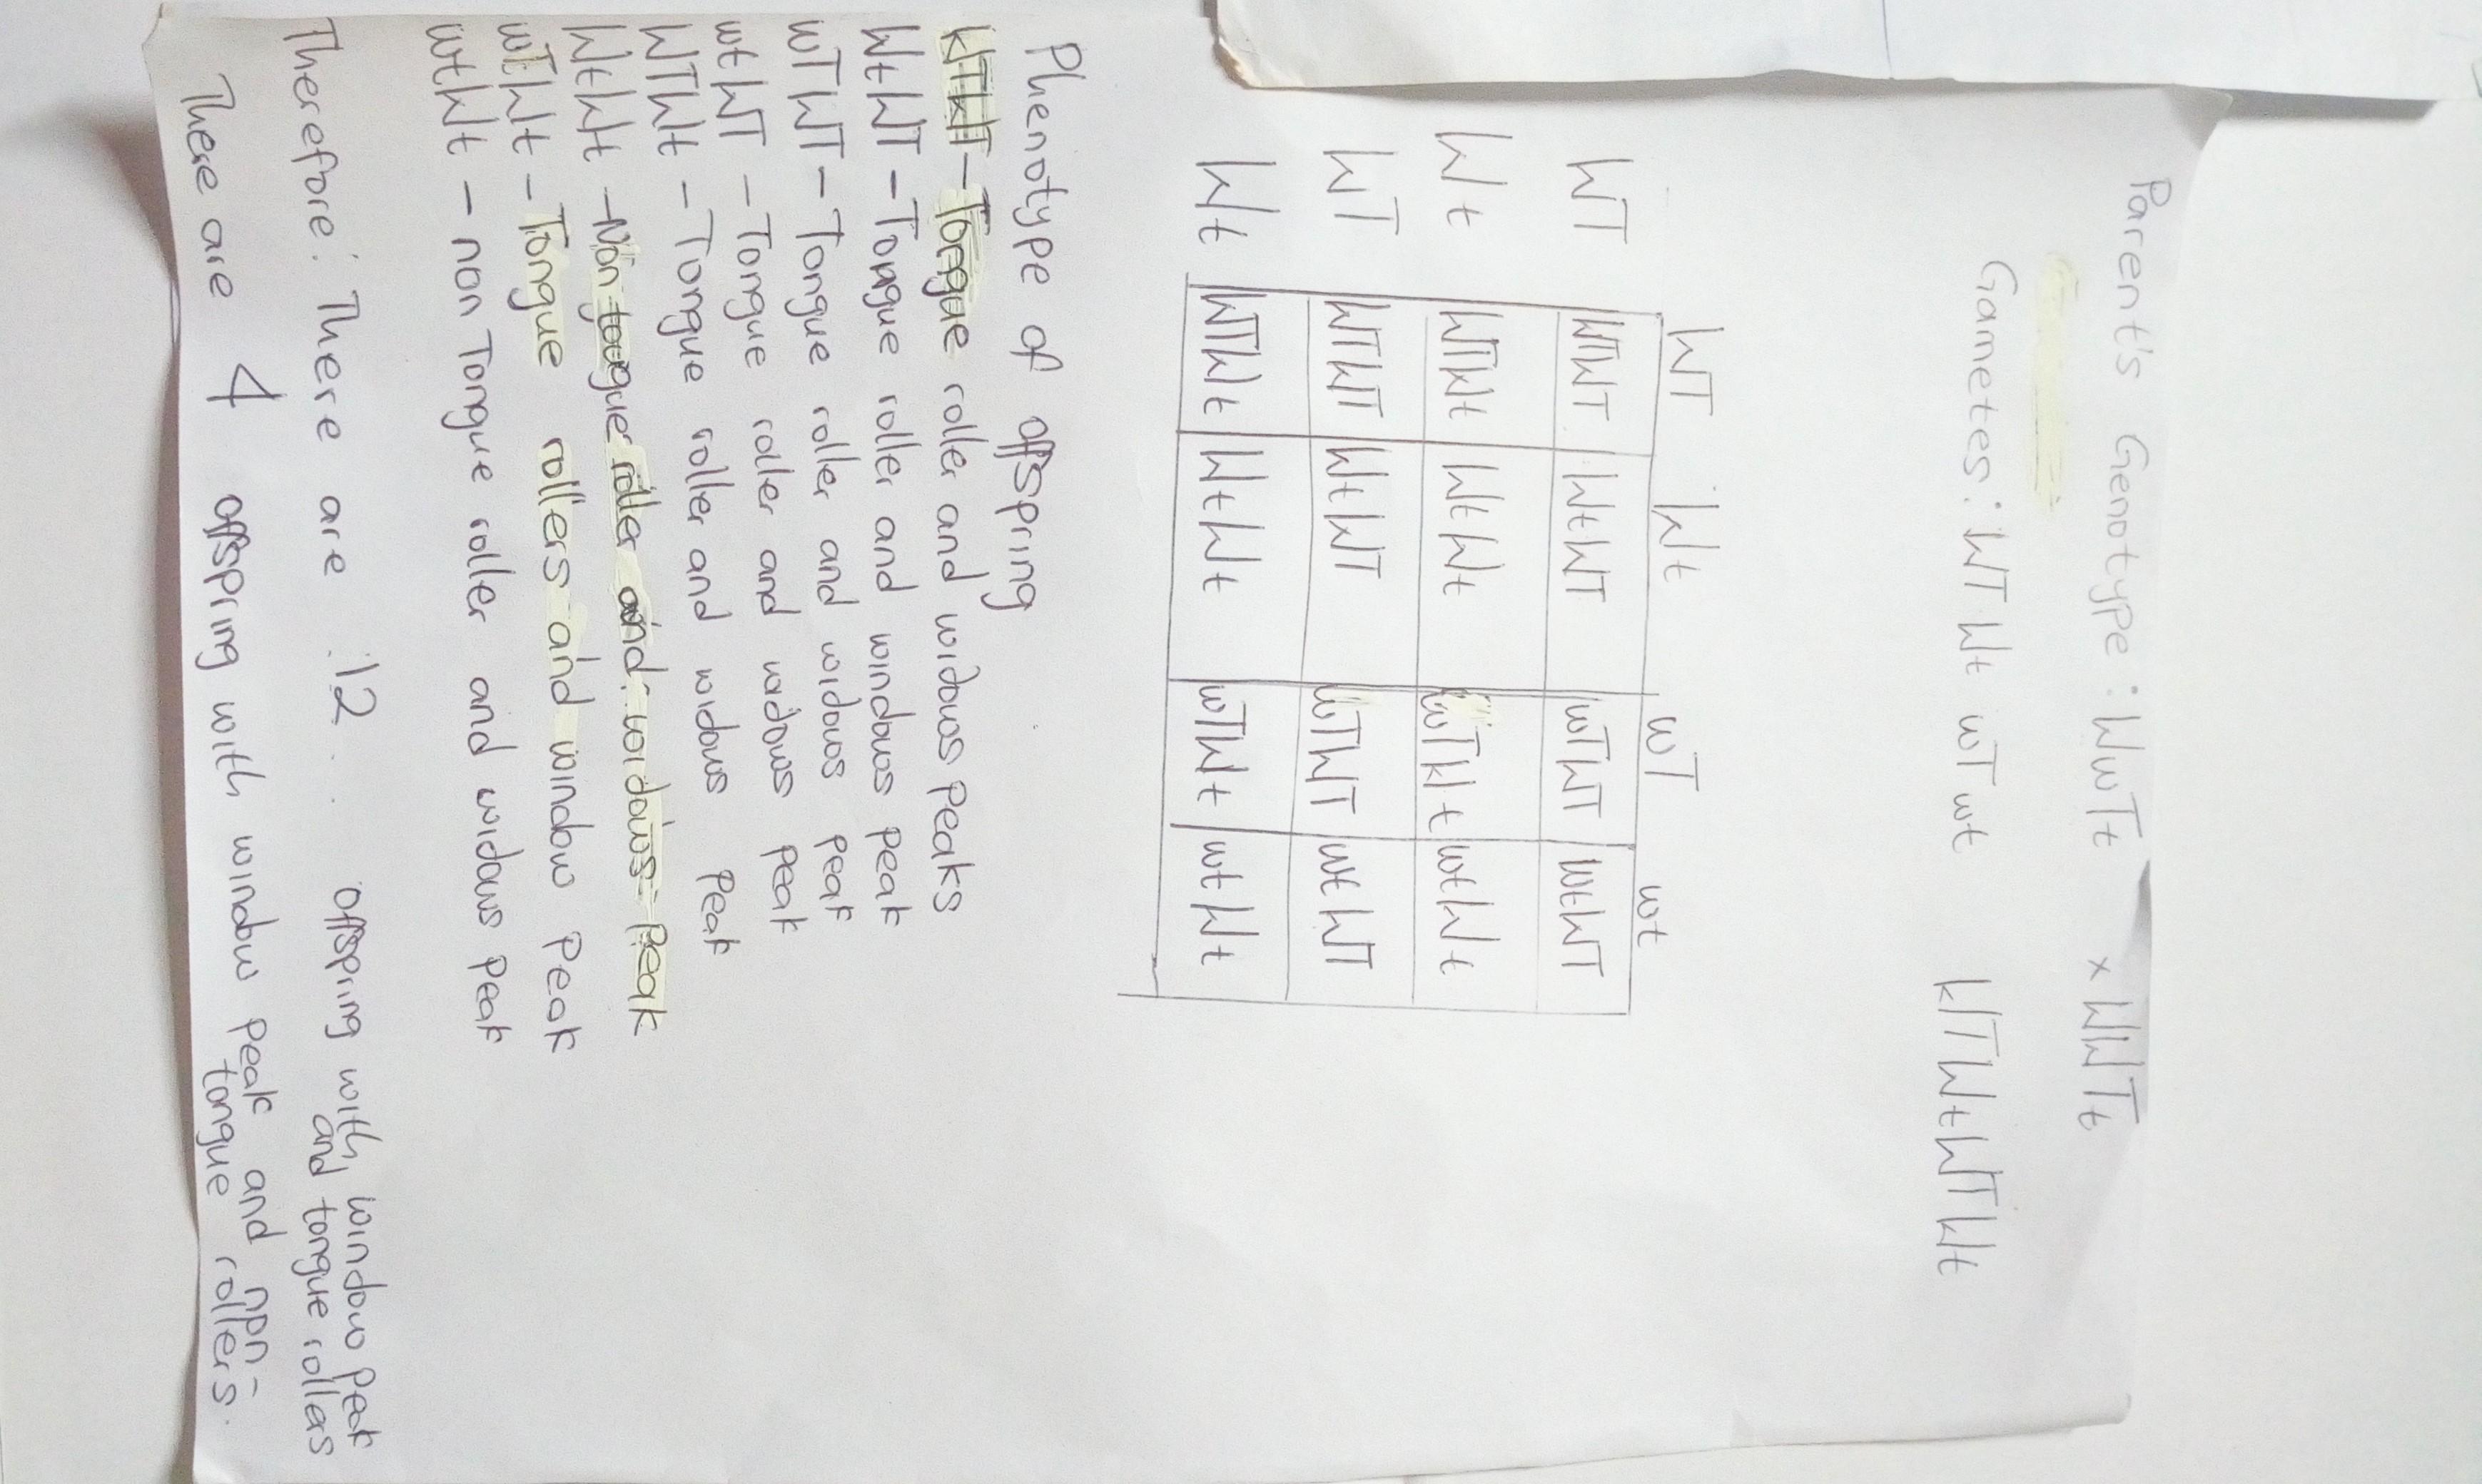 Parent's Genotype : WwTt × WWTt
Gametes: WT Wt wT wt WTWtWTWt
WT Wt wT wt
WT WTWT WtWT wTWT wtWT
Wt WTWt WtWt wTWt wtWt
WT WTWT WtWT wTWT wtWT
Wt WTWt WtWt wTWt wtWt
Phenotype of offspring
WTWT - Tongue roller and widows peaks
WtWT - Tongue roller and windows peak
wTWT - Tongue roller and widows peak
wtWT - Tongue roller and widows peak
WTWt - Tongue roller and widows peak
WtWt - Non tongue roller and widows peak
wTWt - Tongue rollers and window peak
wtWt - non Tongue roller and widows peak
Therefore: There are 12 offspring with window peak
and tongue rollers
There are 4 offspring with window peak and non-
tongue rollers.